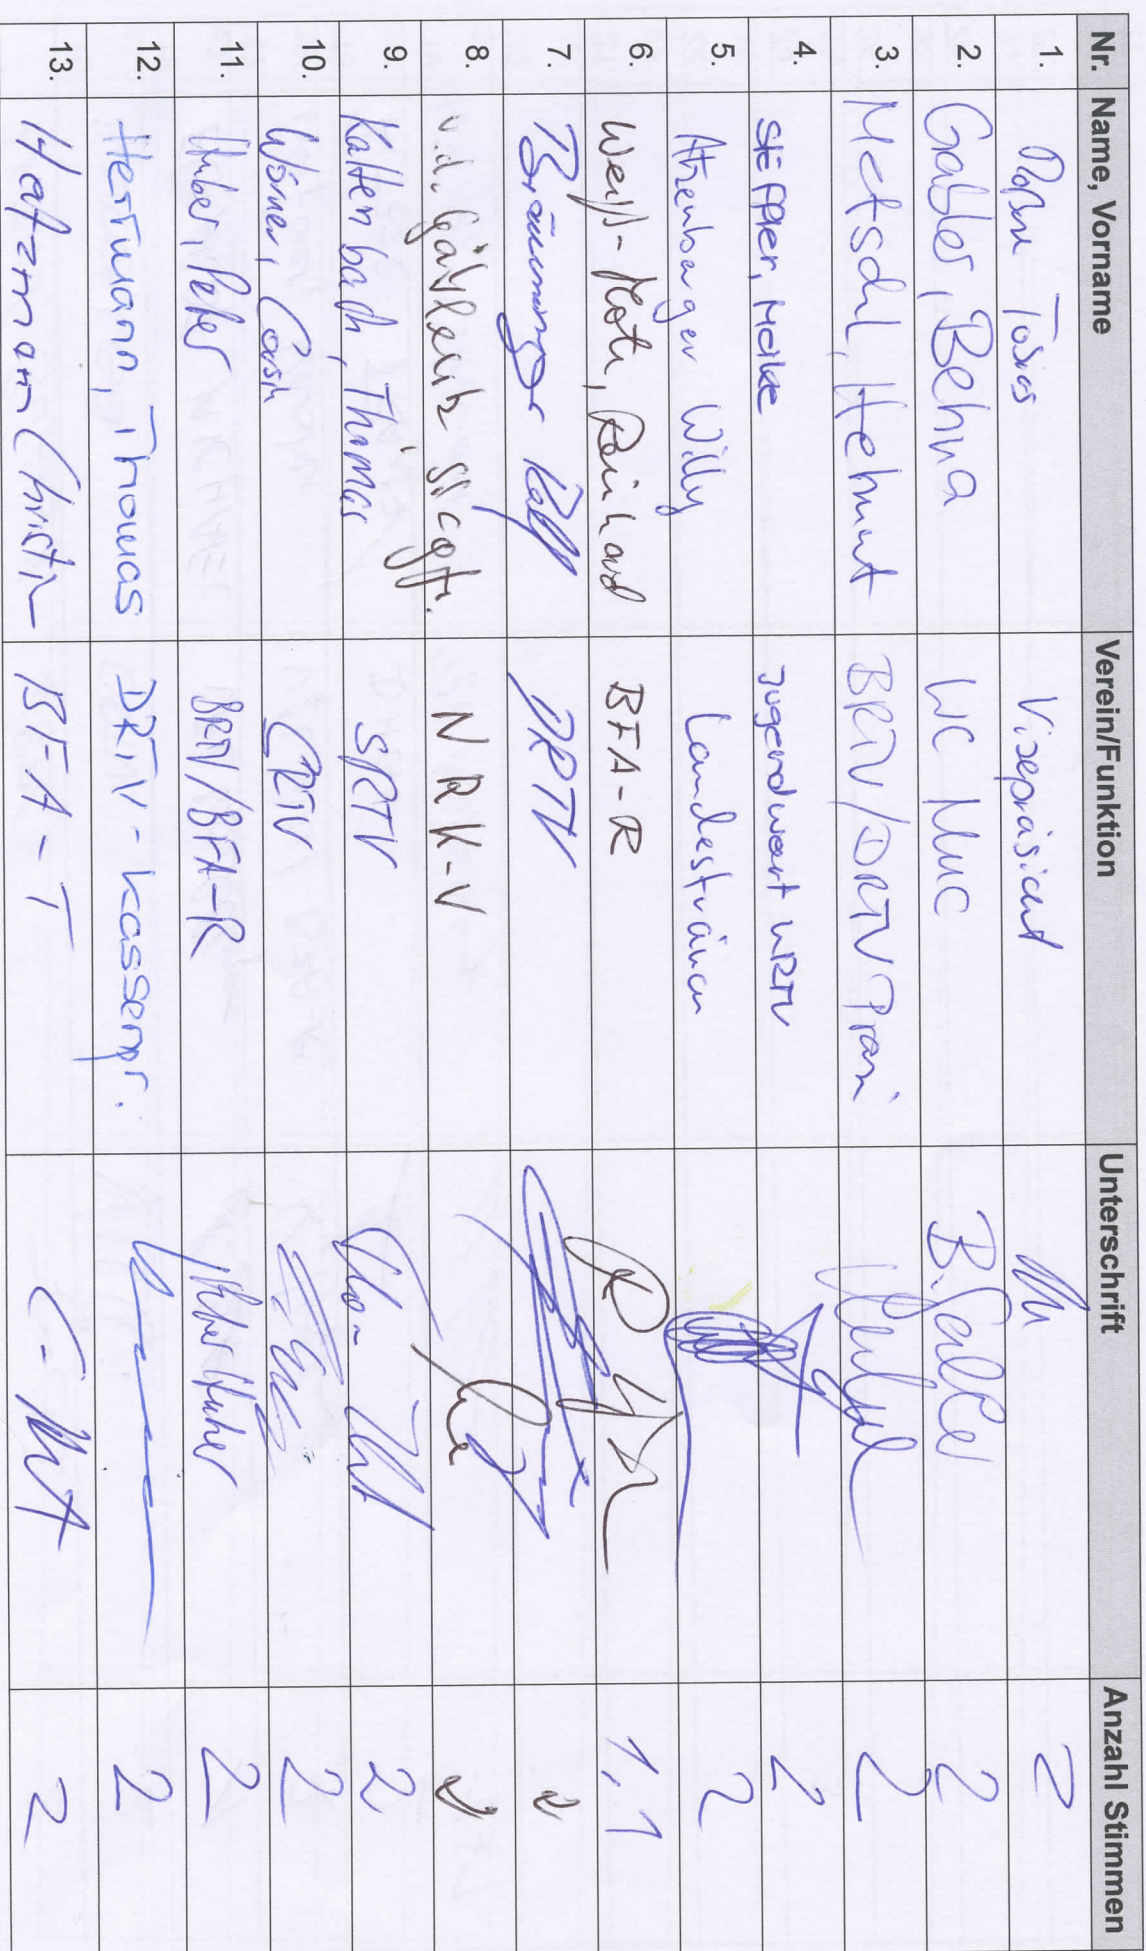 Nr. Name, Vorname Verein/Funktion Unterschrift Anzahl Stimmen
1. Tobias Vizepräsident 2
2. Gabler, Betina WC MUC B. Gabler 2
3. Metschl, Helmut BRTV/DRTV Präsi 2
4. STEFFLER, Meike Jugendwart WRTV 2
5. Atzenberger Willy Landestrainer 2
6. Weiß-Motz, Reinhard BFA-R 1,1
7. Bräuninger Ralf DRTV 2
8. v.d. NRK-V 2
9. Kaltenbach, Thomas SRTV 2
10. Wörner, 2
11. Huber, Peter BRTV/BFA-R Peter Huber 2
12. Herrmann, Thomas DRTV-Kassenpr. 2
13. Hatzmann Christin BFA-T 2